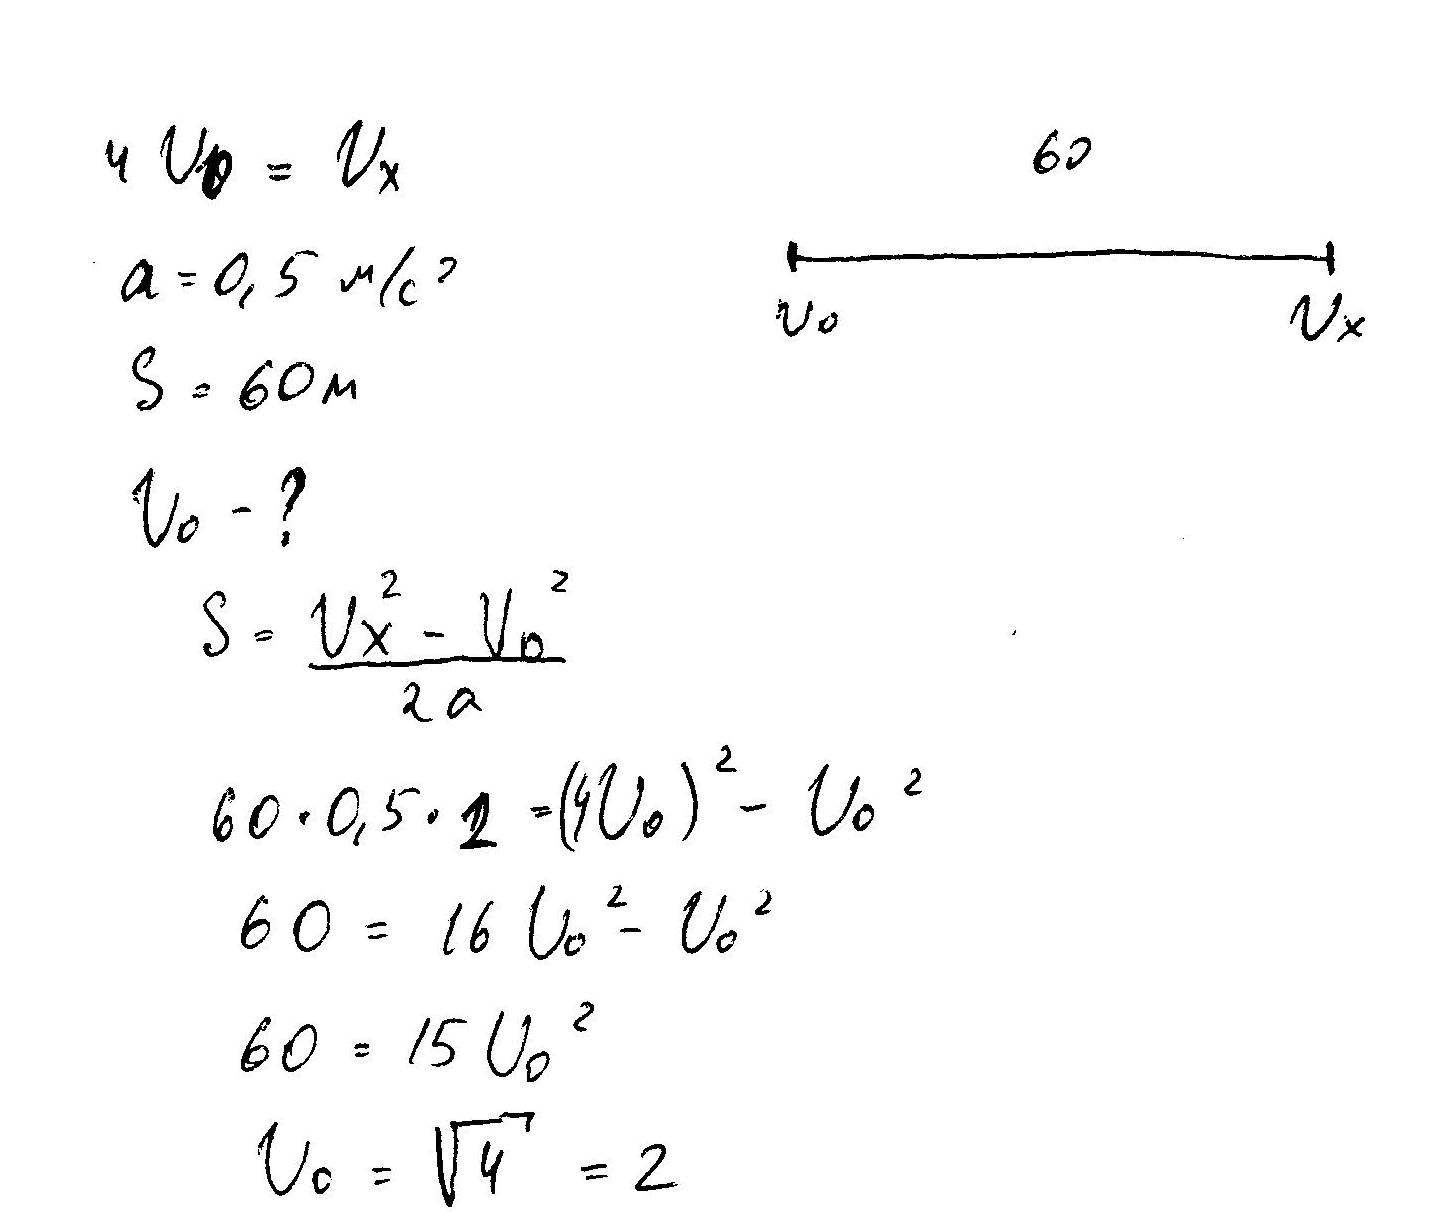 4 V₀ = Vₓ
60
a = 0,5 м/с²
V₀ Vₓ
S = 60 м
V₀ - ?
S = (Vₓ² - V₀²) / 2a
60 · 0,5 · 2 = (4V₀)² - V₀²
60 = 16 V₀² - V₀²
60 = 15 V₀²
V₀ = √4 = 2